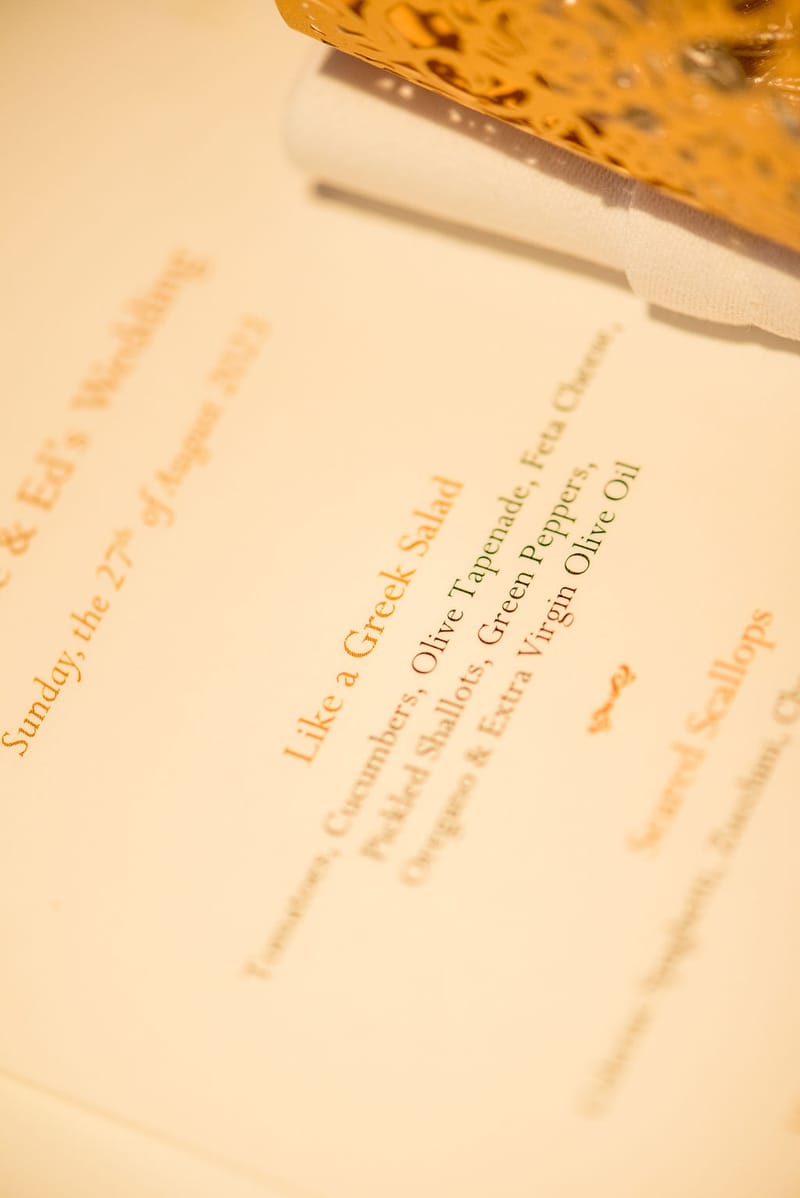 & Ed's Wedding
Sunday, the 27th of August 2023
Like a Greek Salad
Tomatoes, Cucumbers, Olive Tapenade, Feta Cheese,
Pickled Shallots, Green Peppers,
Oregano & Extra Virgin Olive Oil
Seared Scallops
Spaghetti, Zucchini,